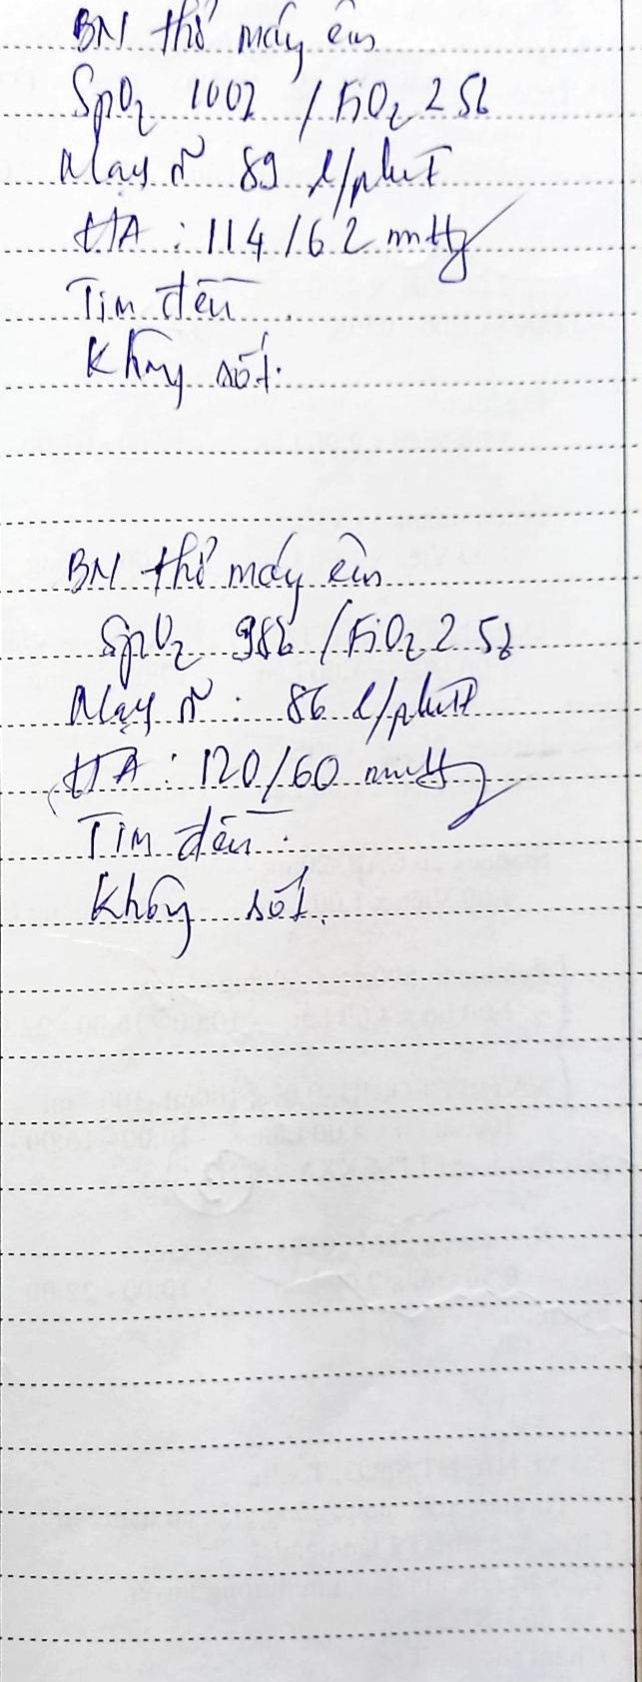 BN thở máy êm
SpO2 100% / FiO2 25%
Mạch rõ 89 l/phút
HA : 114/62 mmHg
Tim đều.
Không sốt.
BN thở máy êm
SpO2 98% / FiO2 25%
Mạch rõ : 86 l/phút
HA : 120/60 mmHg
Tim đều.
Không sốt.